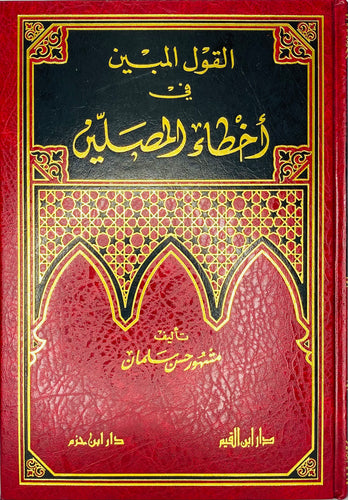 القول المبين
في
أخطاء المصلين
تأليف
مشهور حسن سلمان
دار ابن القيم
دار ابن حزم